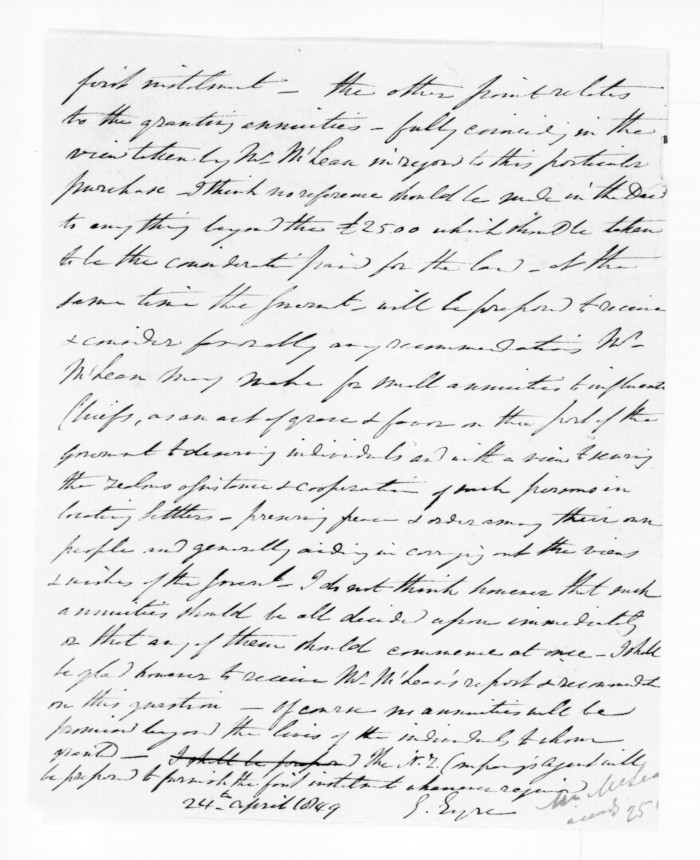 first instalment – the other point relates
to the granting annuities – fully coinciding in the
view taken by Mr. McLean in regard to this particular
purchase – I think no reference should be made in the Deed
to anything beyond the £2500 which should be taken
to be the consideration paid for the land – at the
same time the Governt. will be prepared to receive
& consider favorably any recommendations Mr.
McLean may make for small annuities to influential
Chiefs, as an act of grace & favor on the part of the
Government to deserving individuals and with a view to securing
the zealous assistance & cooperation of such persons in
locating Settlers – preserving peace & order among their own
people and generally aiding in carrying out the views
& wishes of the Governt. – I do not think however that such
annuities should be all decided upon immediately
or that any of them should commence at once – I shall
be glad however to receive Mr. McLean's report & recommendation
on this question – Of course no annuities will be
promised beyond the lives of the individuals to whom
granted – I shall be prepared The N.Z. Company's Agent will
be prepared to furnish the first instalment whenever required
24th April 1849 E. Eyre
Mr. McLean
25